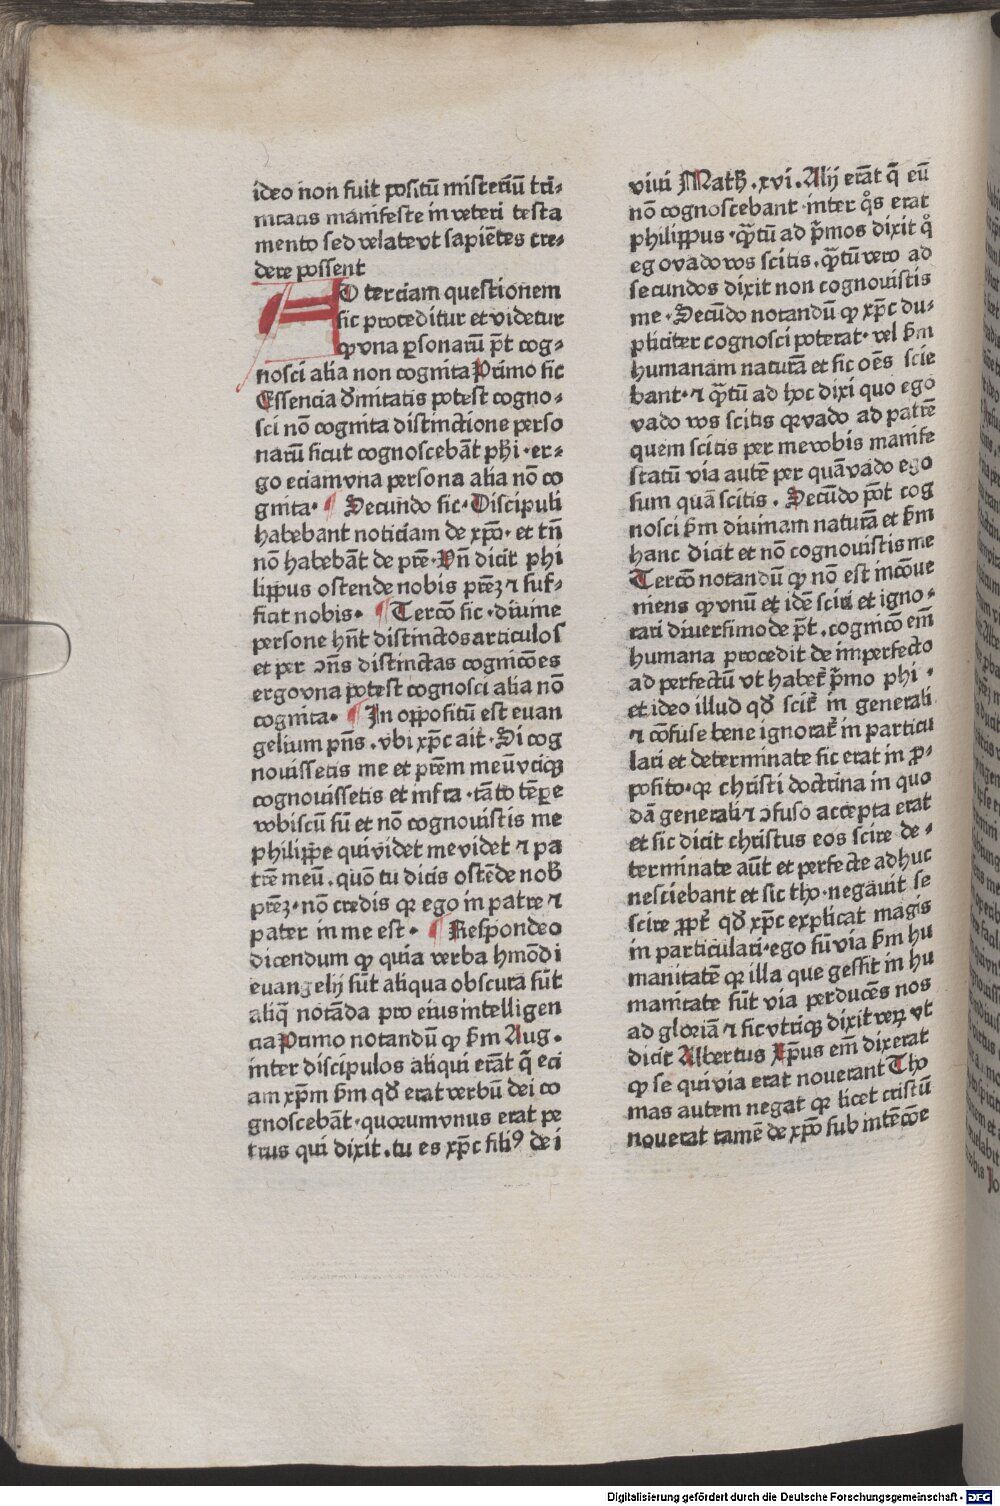 ideo non fuit positū misteriū tri⸗
nitatis manifeste in veteri testa
mento sed velate vt sapiētes cre⸗
dere possent
AD terciam questionem
sic proceditur et videtur
ꝙ vna ꝑsonarū pt̄ cog⸗
nosci alia non cognita Primo sic
Essencia diuinitatis potest cogno⸗
sci nō cognita distinctione perso
narū sicut cognoscebāt ph̄i · er⸗
go eciam vna persona alia nō co
gnita · ¶ Secundo sic · Discipuli
habebant noticiam de xp̄o · et tn̄
nō habebāt de pr̄e · Vn̄ dicit phi
lippus ostende nobis prēꝫ ⁊ suf⸗
ficit nobis · ¶ Tercō sic · diuine
persone hn̄t distinctos articulos
et per ↄn̄s distinctas cognicōes
ergo vna potest cognosci alia nō
cognita · ¶ In oppositū est euan
gelium pn̄s . vbi xp̄c ait · Si cog
nouissetis me et prēm meū vtiqꝫ
cognouissetis et infra · tāto tēꝑe
vobiscū sū et nō cognouistis me
philippe qui videt me videt ⁊ pa
trē meū . quō tu dicis ostēde nob̄
prēꝫ · nō credis qꝛ ego in patre ⁊
pater in me est · ¶ Respondeo
dicendum ꝙ quia verba hmōdi
euangelij sūt aliqua obscura sūt
aliq̄ notāda pro eius intelligen
cia Primo notandū ꝙ ẜm Aug ·
inter discipulos aliqui erāt q̄ eci
am xp̄m ẜm qd̄ erat verbū dei co
gnoscebāt · quoꝛum vnus erat pe
trus qui dixit . tu es xp̄c filiꝰ dei
viui Math̄ . xvi . Alij erāt q̄ eū
nō cognoscebant · inter qͦs erat
philippus · qꝫtū ad pͥmos dixit qͦ
ego vado vos scitis . qꝫtū vero ad
secundos dixit non cognouistis
me · Secūdo notandū ꝙ xp̄c du⸗
pliciter cognosci poterat · vel ẜm
humanam naturā et sic oēs scie
bant · ⁊ qꝫtū ad hoc dixi quo ego
vado vos scitis qꝛ vado ad patrē
quem scitis per me vobis manife
statū via autē per quā vado ego
sum quā scitis . Secūdo pōt cog
nosci ẜm diuinam naturā et ẜm
hanc dicit et nō cognouistis me
Tercō notandū ꝙ nō est incōue
niens ꝙ vnū et idē sciri et igno⸗
rari diuersimode pt̄ . cognicō em̄
humana procedit de imperfecto
ad perfectū vt habet̄ pͥmo phi ·
et ideo illud qd̄ scit̄ in generali
⁊ cōfuse bene ignorat̄ in particu
lari et determinate sic erat in ꝓ⸗
posito · qꝛ christi doctrina in quo
dā generali ⁊ ↄfuso accepta erat
et sic dicit christus eos scire de⸗
terminate aūt et perfecte adhuc
nesciebant et sic tho · negauit se
scire ꝓpt̄ qd̄ xp̄c explicat magis
in particulari · ego sū via ẜm hu
manitatē qꝛ illa que gessit in hu
manitate sūt via perducēs nos
ad gloꝛiā ⁊ sic vtrūqꝫ dixit veꝝ vt
dicit Albertus Xp̄us em̄ dixerat
ꝙ se qui via erat nouerant Tho
mas autem negat qꝛ licet cristū
nouerat tamē de xp̄o sub intēcōe